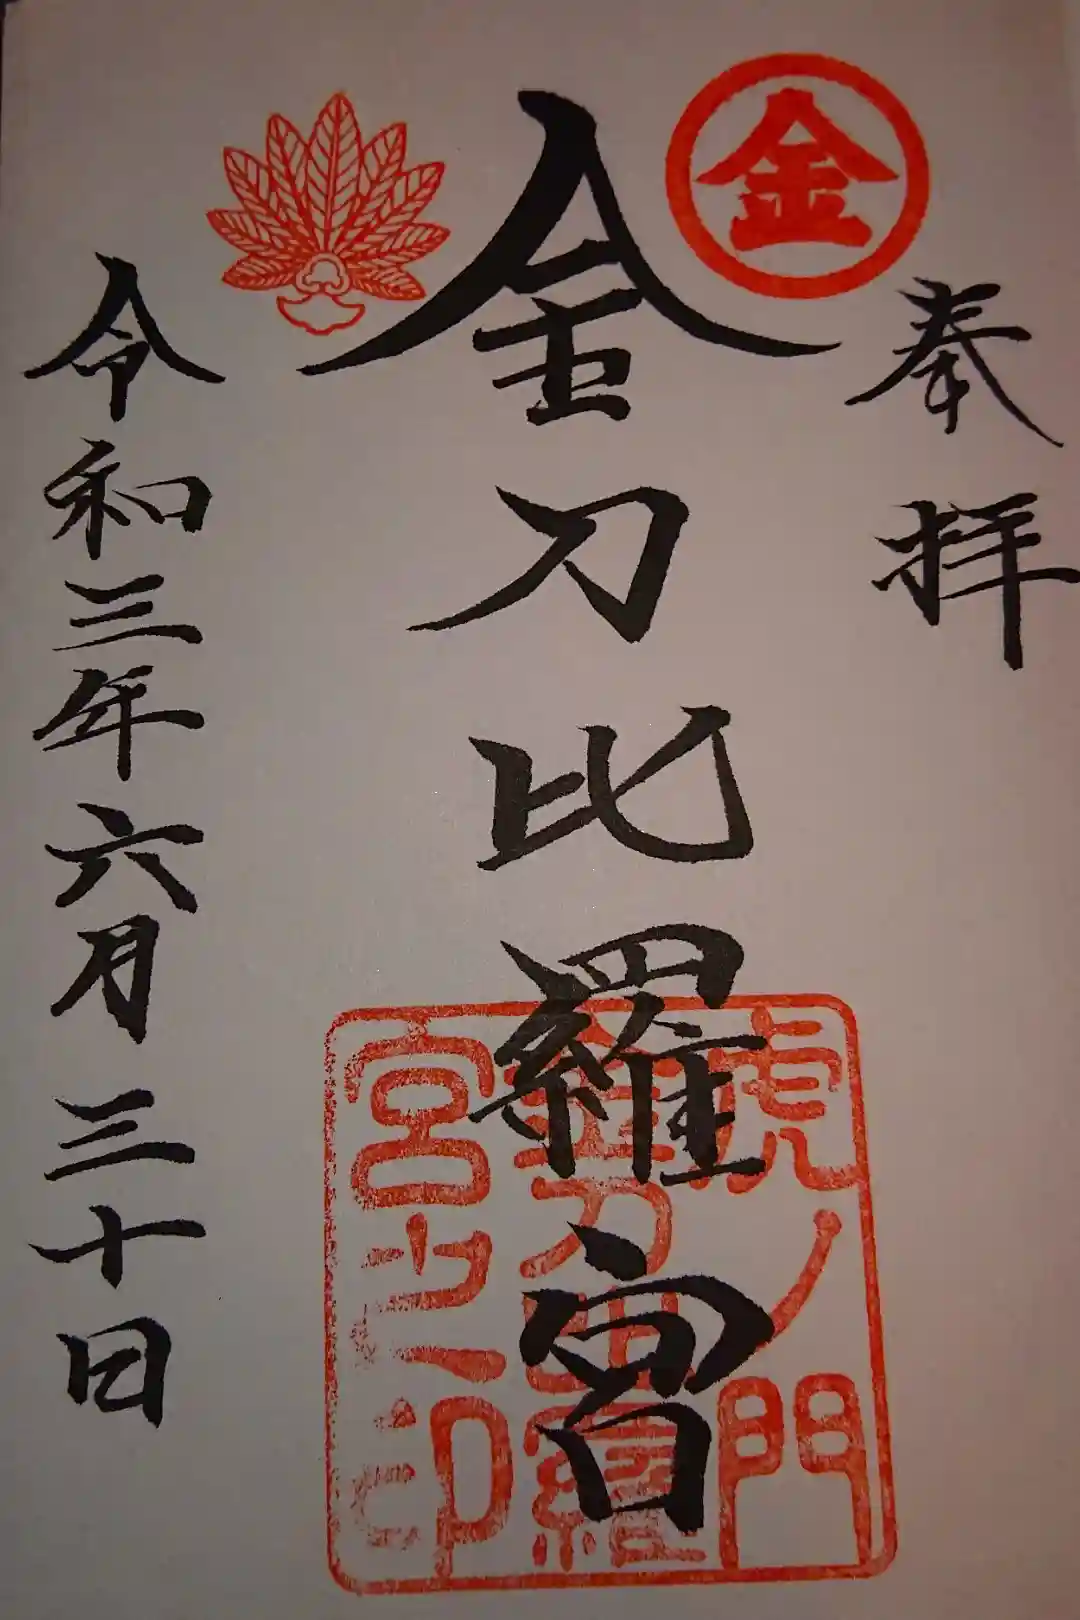 奉拝
金
金刀比羅宮
虎ノ門
金刀比羅
宮之印
令和三年六月三十日